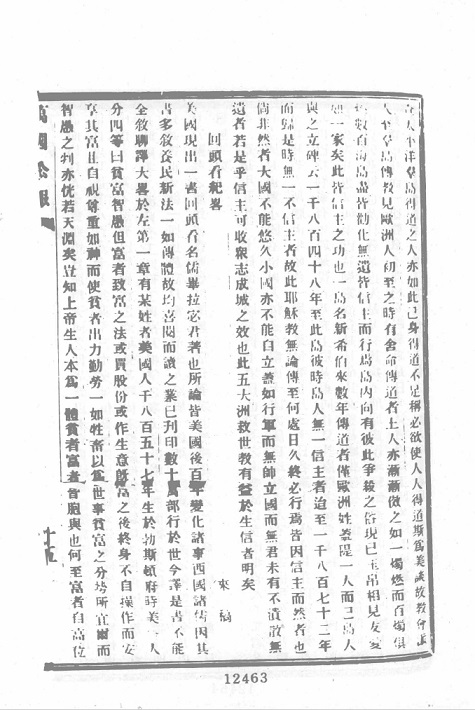 太平洋羣島得道之人亦如此己身得道不足稱必欲使人人得道斯爲美談故教會
人至羣島傳教見歐洲人初至之時有舍命傳道者土人亦漸漸傚之如一燭燃而百燭俱
數百海島盡皆勸化無遺皆信主而行焉島內向有彼此爭殺之俗現已玉帛相見友愛
如一家矣此皆信主之功也一島名新希伯來數年傳道者僅歐洲姓蓋隄一人而已島人
與之立碑云一千八百四十八年至此島彼時島人無一信主者迨至一千八百七十二年
而歸是時無一不信主者故此耶穌教無論傳至何處日久終必行焉皆因信主而然者也
倘非然者大國不能悠久小國亦不能自立蓋如行軍而無帥立國而無君未有不潰散無
遺者若是乎信主可收衆志成城之效也此五大洲救世教有益於生信者明矣
回頭看紀畧 來稿
美國現出一書回頭看名儒畢拉宓君著也所論皆美國後百年變化諸事西國諸儒因其
書多敘養民新法一如傳體故均喜閱而讀之業已刊印數十萬部行於世今譯是書不能
全敘聊譯大畧於左第一章有某姓者美國人千八百五十七年生於勃斯頓府時美人
分四等曰貧富智愚但富者致富之法或買股份或作生意創富之後終身不自操作而安
享其富且自視尊重如神而使貧者出力勤勞一如牲畜以爲世事貧富之分塲所宜爾而
智愚之判亦恍若天淵矣豈知上帝生人本爲一體貧者富者皆胞與也何至富者自高位
萬國公報
十五
12463